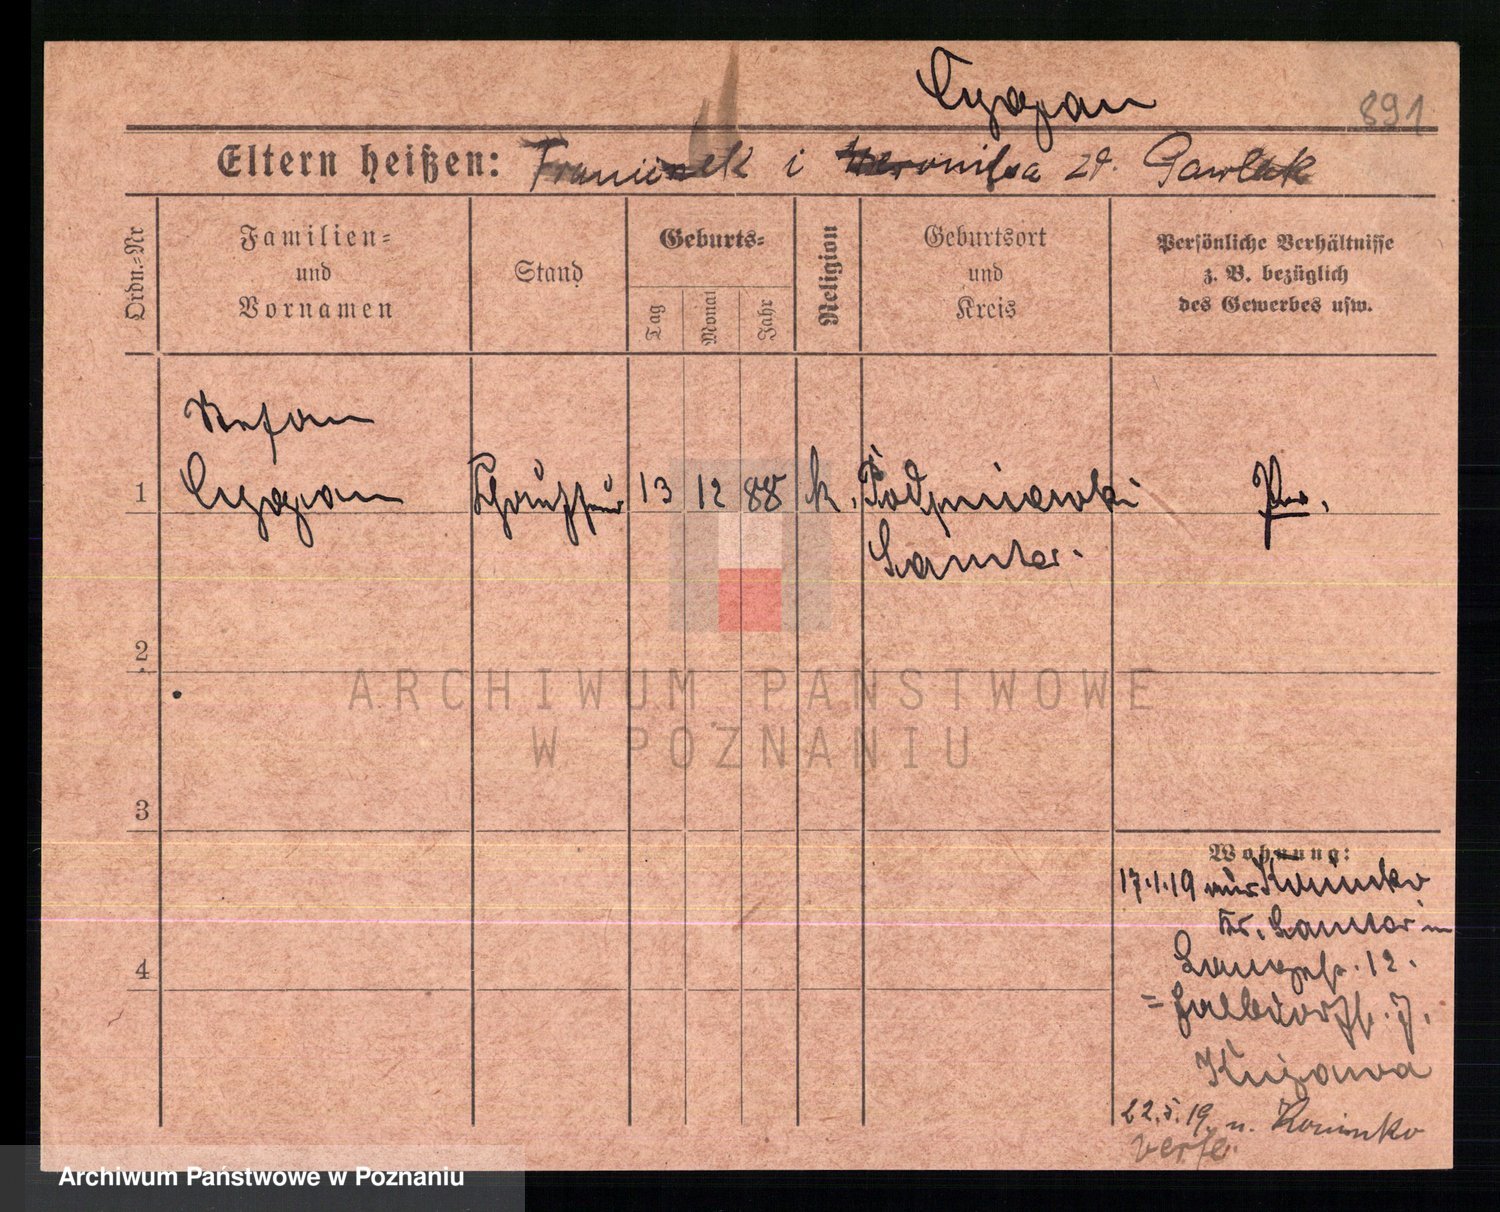 Czajan
891
Eltern heißen: Franciszek i Weronika zd. Gawlak
Ordn.-Nr
Familien-
und
Vornamen
Stand
Geburts-
Tag
Monat
Jahr
Religion
Geburtsort
und
Kreis
Persönliche Verhältnisse
z. B. bezüglich
des Gewerbes usw.
Stefan
1 13 12 88 k. Pr.
Samter.
2
3
4
Wohnung:
17.1.19 aus Koninko
Kr. Samter in
Langestr. 12.
= Halbdorfstr. 7.
Kujawa
22.5.19. n. Koninko
ARCHIWUM PAŃSTWOWE
W POZNANIU
Archiwum Państwowe w Poznaniu